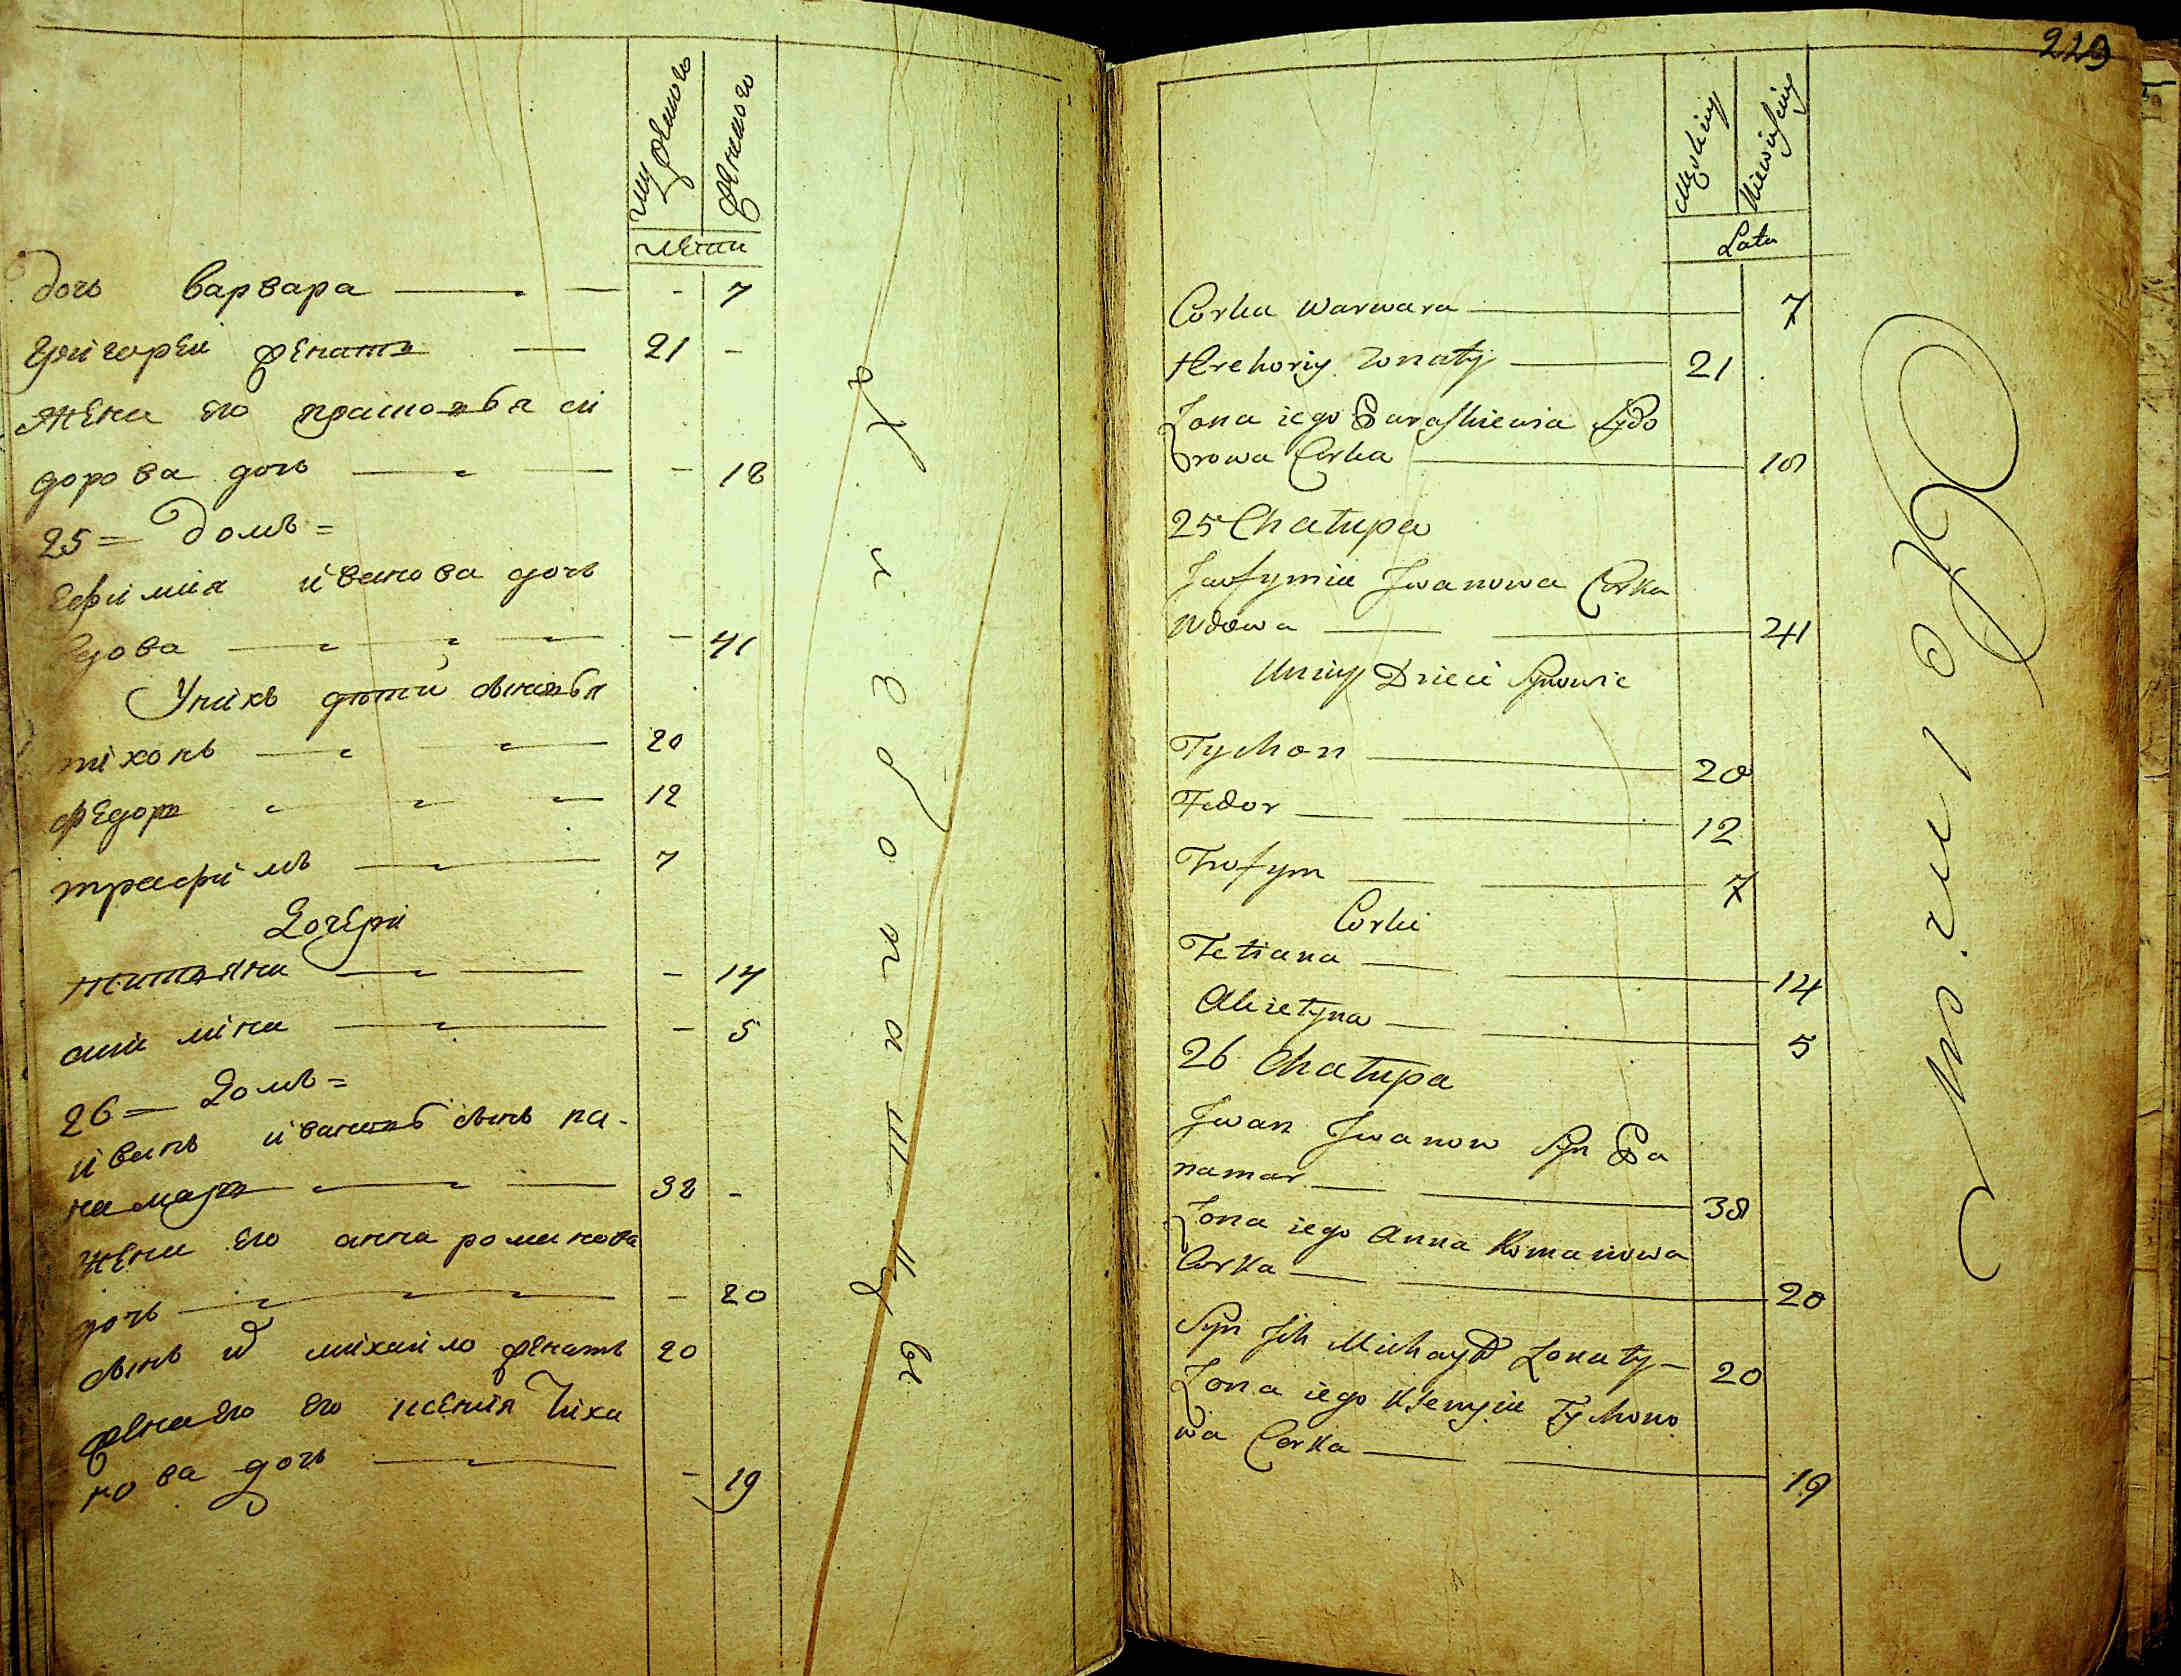 мужеска
женска
лѣта
дочь варвара — — - 7
григорей женатъ — 21 -
жена его прасковья си
дорова дочь — — - 18
25 = домъ =
Ефимия иванова дочь
вдова — — — - 41
У нихъ дѣти сыновья
тихонъ — — 20
федоръ — — 12
трафимъ — 7
Дочери
татьяна — — - 14
— - 5
26 = Домъ =
иванъ ивановъ сынъ па-
намарь — — 38 -
жена его анна романова
дочь — — — - 20
сынъ михаило женатъ 20
жена его ксения тихо
нова дочь — — - 19
229
Męskiey
Niewieściey
Lata
Corka Warwara — 7
Hrehoriy Zonaty — 21
Zona iego Paraskiewia Sydo
rowa Corka — 18
25 Chałupa
Jawfymia Jwanowa Corka
Wdowa — — 41
Unniy Dzieci Synowie
Tychon — 20
Fedor — — 12
Trofym — — 7
Corki
Tetiana — — 14
— — 5
26 Chałupa
Jwan Jwanow Syn Pa
namar — — 38
Zona iego Anna Romanowa
Corka — — 20
Syn Jch Michayło Zonaty — 20
Zona iego Ksenyia Tychono
wa Corka — — 19